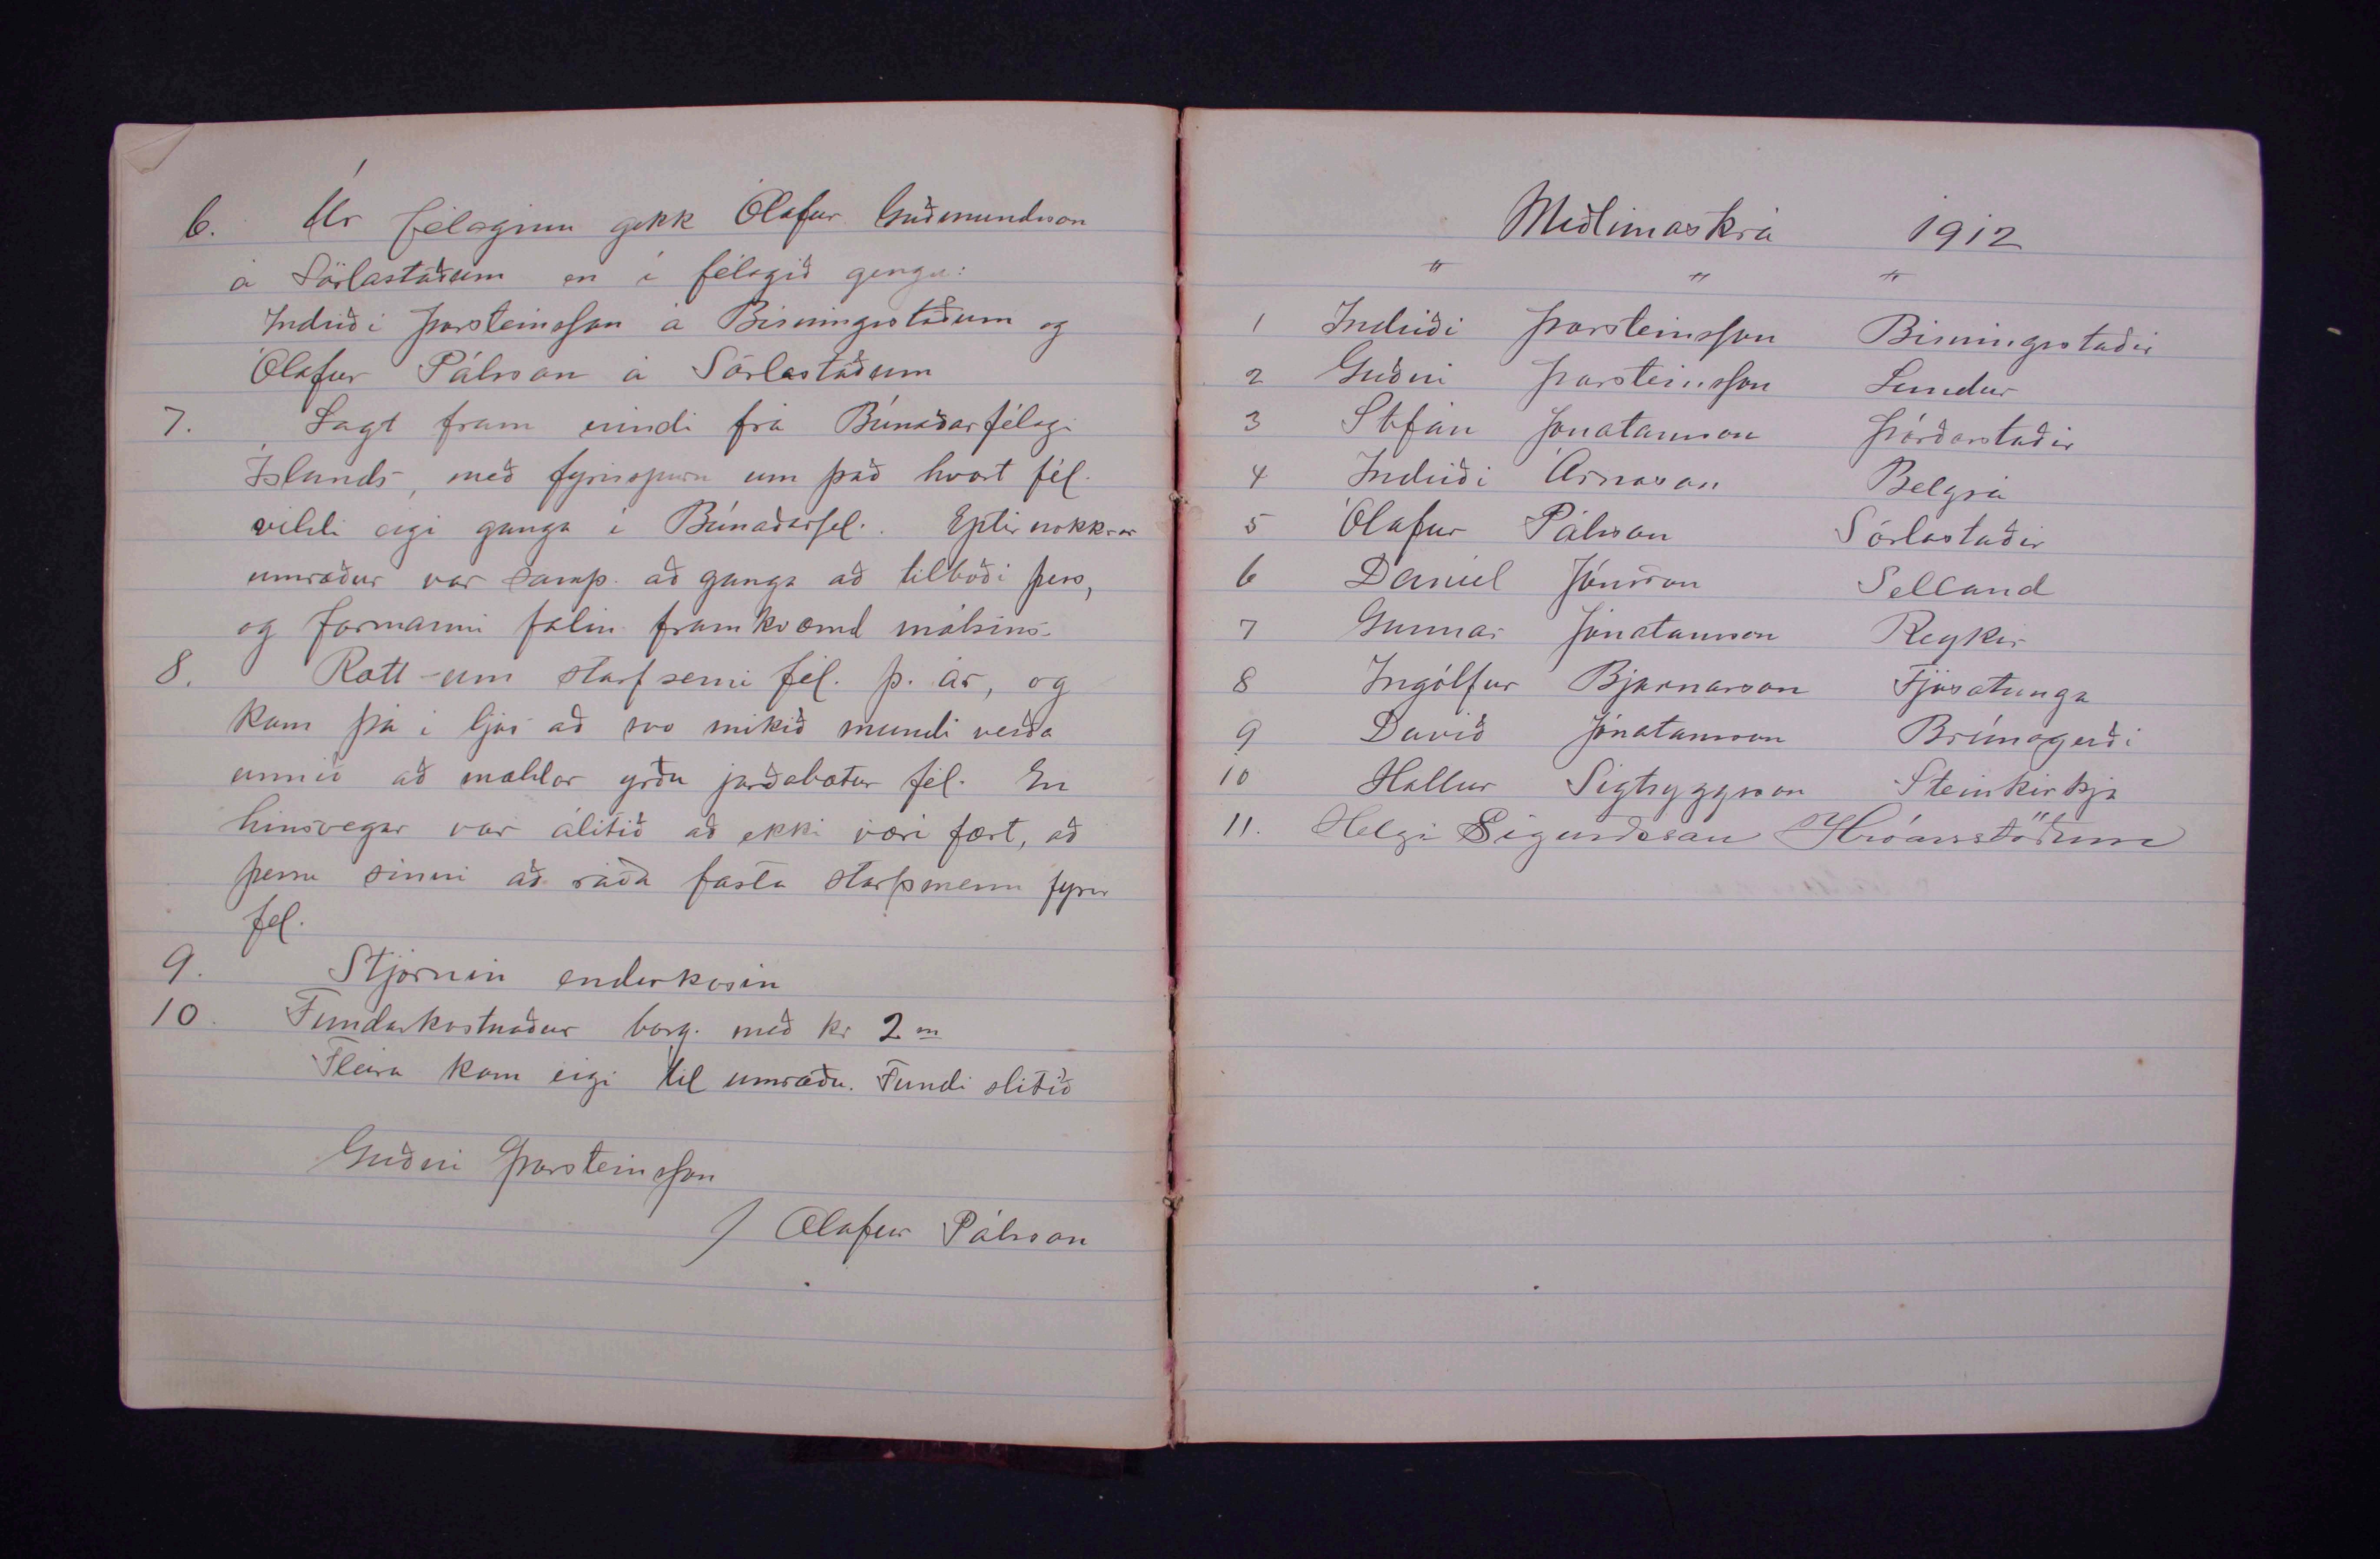 6. Úr félaginu gekk Ólafur Guðmundsson
á Sörlastöðum en í félagið gengu:
Indriði Þorsteinsson á Birningsstöðum og
Ólafur Pálsson á Sörlastöðum
7. Lagt fram erindi frá Búnaðarfélagi
Íslands, með fyrirspurn um það hvort fél.
vildi eigi ganga í Búnaðarfel. Eptir nokkrar
umræður var samþ. að ganga að tilboði þess,
og formanni falin framkvæmd málsins.
8. Rætt um starfsemi fél. þ. ár, og
kom þá í ljós að svo mikið mundi verða
unnið að mældar yrðu jarðabætur fél. En
hinsvegar var álitið að ekki væri fært, að
þessu sinni að ráða fasta starfsmenn fyrir
fel.
9. Stjórnin endurkosin
10. Fundarkostnaður borg. með kr 2
Fleira kom eigi til umræðu. Fundi slitið
Guðni Þorsteinsson
/ Ólafur Pálsson
Meðlimaskrá 1912
" " "
1 Indriði Þorsteinsson Birningsstaðir
2 Guðni Þorsteinsson Lundur
3 Stefán Jónatansson Þórðarstaðir
4 Indriði Árnason Belgsá
5 Ólafur Pálsson Sörlastaðir
6 Daníel Jónsson Selland
7 Gunnar Jónatansson Reykir
8 Ingólfur Bjarnarson Fjósatunga
9 Davíð Jónatansson Brúnagerði
10 Hallur Sigtryggsson Steinkirkja
11. Helgi Sigurdsson Hróarsstöðum